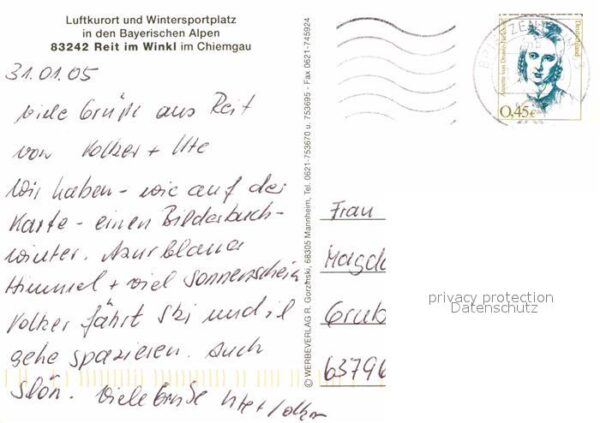 Luftkurort und Wintersportplatz
in den Bayerischen Alpen
83242 Reit im Winkl im Chiemgau
31.01.05
Viele Grüße aus Reit
von Volker + Ute
Wir haben - wie auf der
Karte - einen Bilderbuch-
winter. Azurblaue
Himmel + viel Sonnenschein
Volker fährt Ski und ich
gehe spazieren. Auch
schön. Viele Grüße Ute + Volker
© WERBEVERLAG R. Gorzinski, 68305 Mannheim, Tel. 0621-753670 u. 753695 · Fax 0621-745924
Deutschland
Annette von Droste-Hülshoff
0,45€
Frau
Magda
Grub
63796
privacy protection
Datenschutz